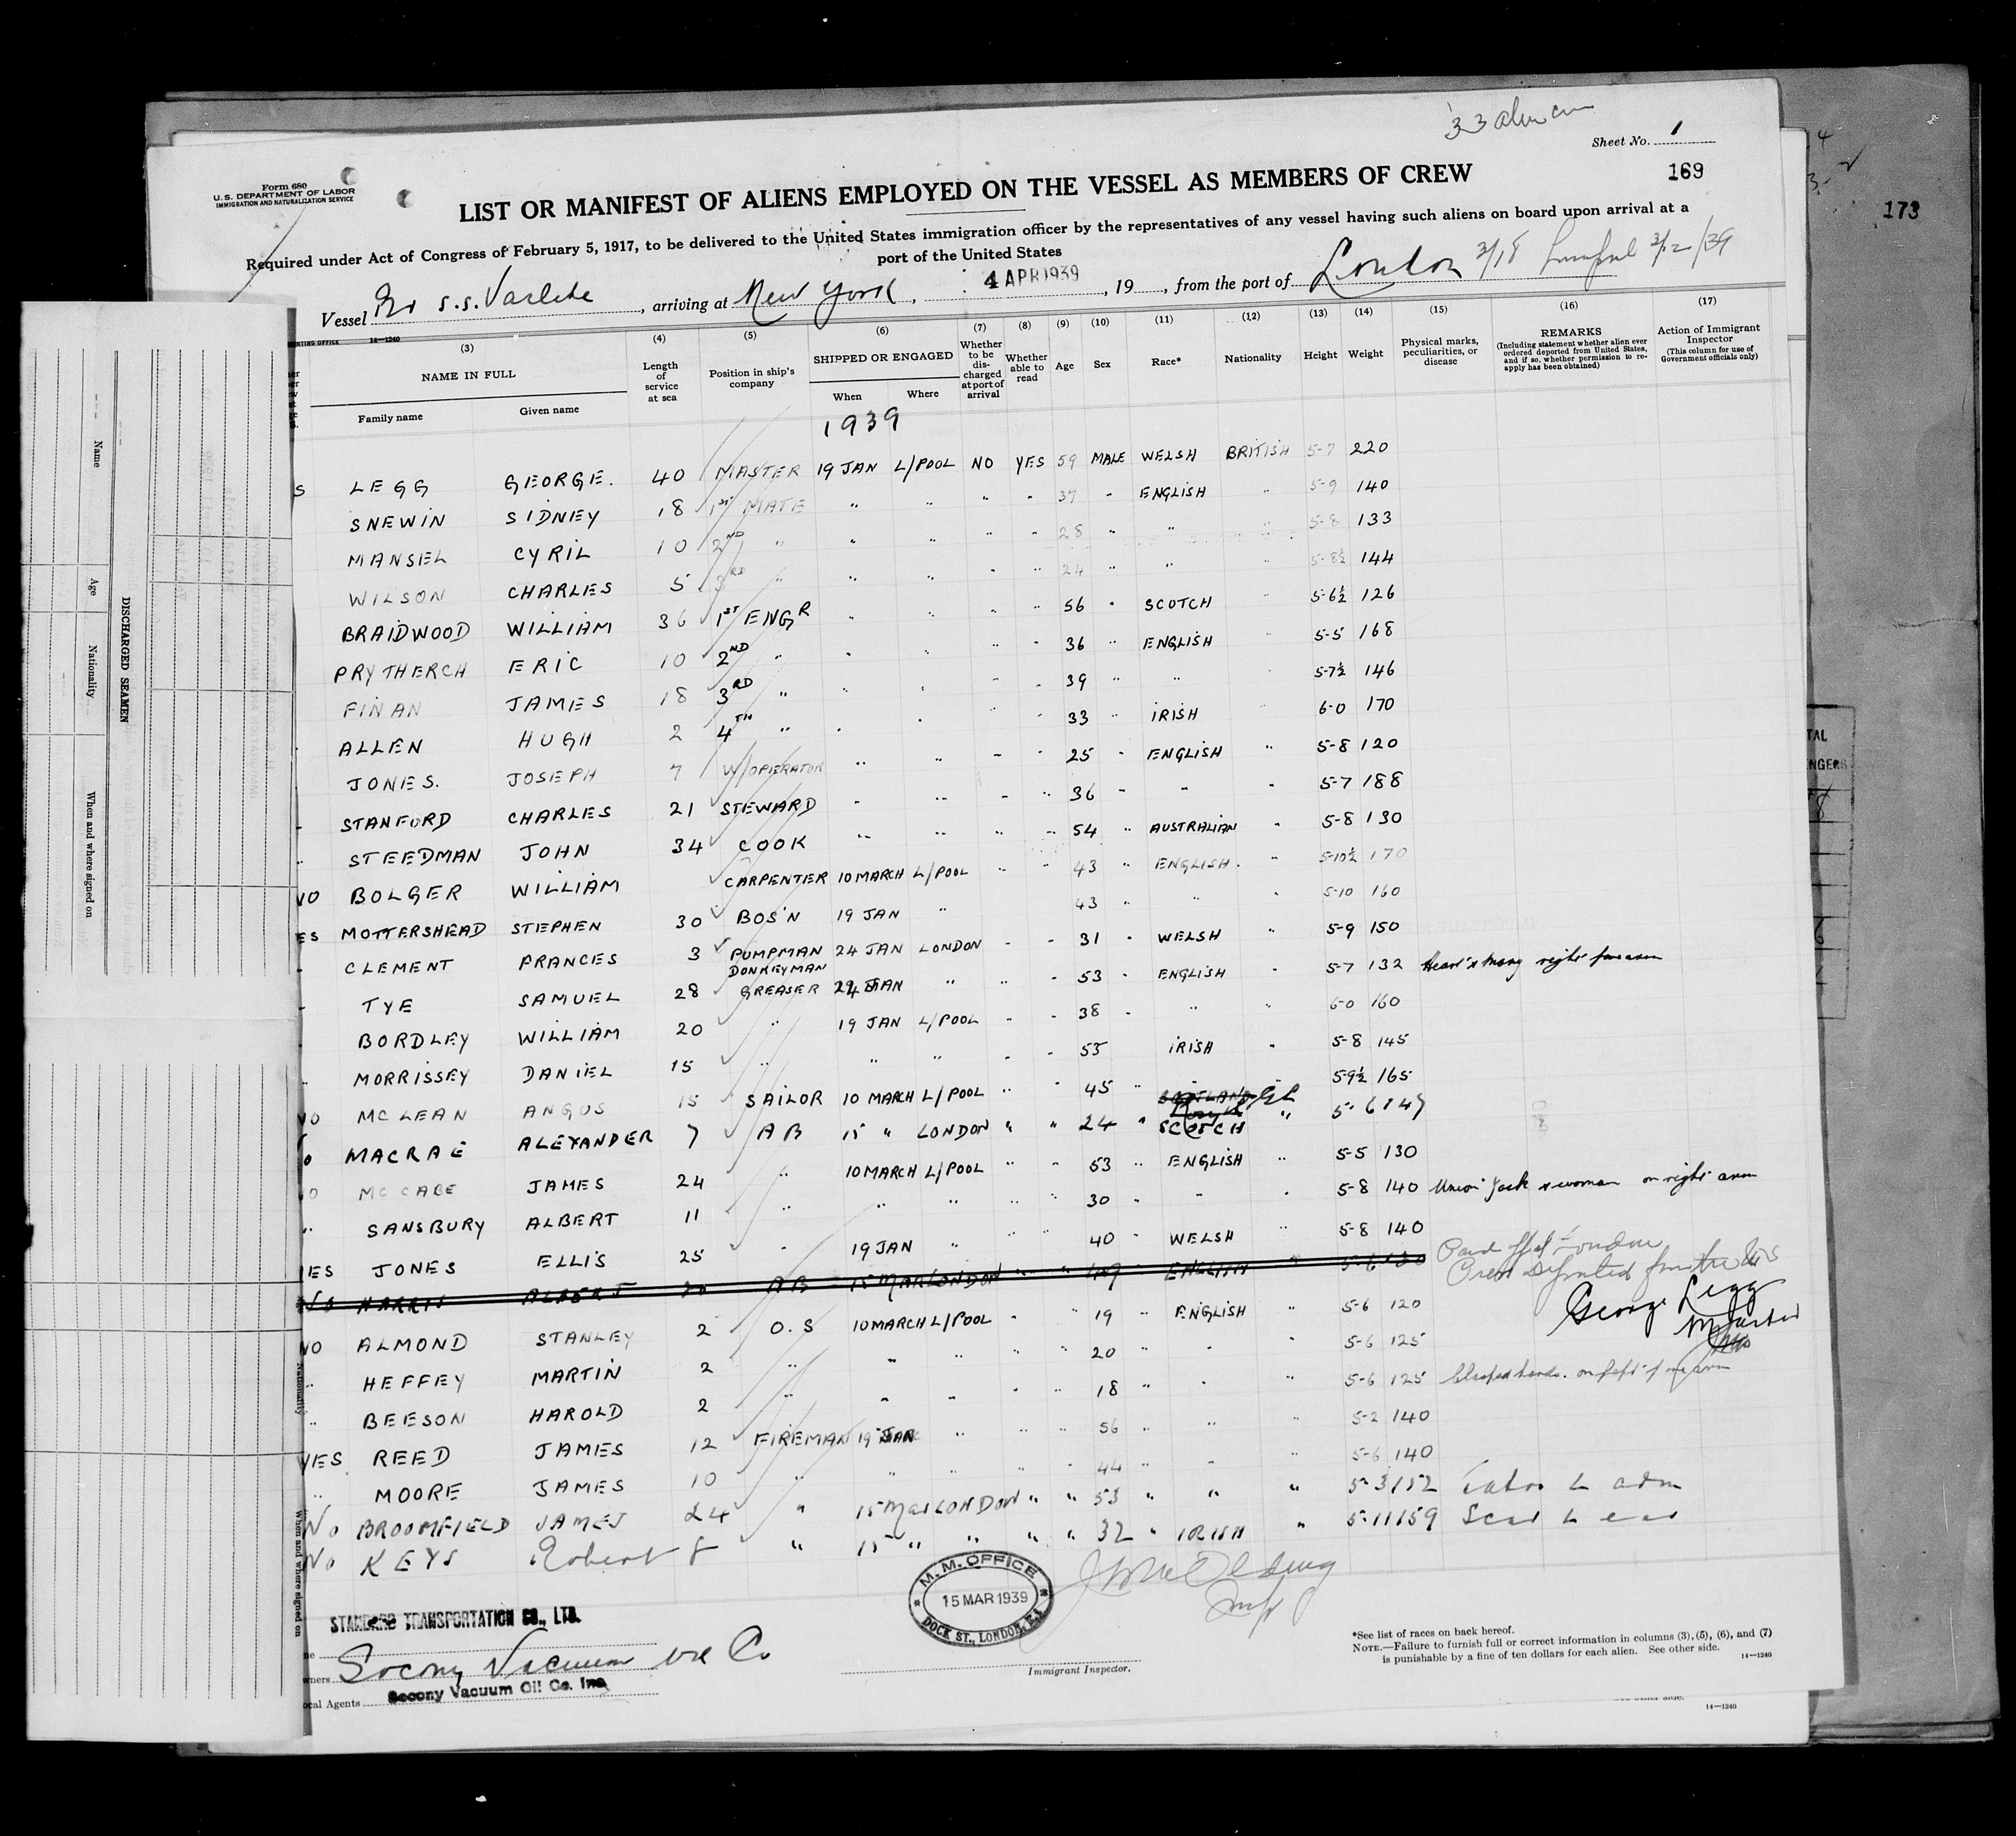 33 alien crew
Sheet No. 1
Form 680
U.S. DEPARTMENT OF LABOR
IMMIGRATION AND NATURALIZATION SERVICE
169
173
LIST OR MANIFEST OF ALIENS EMPLOYED ON THE VESSEL AS MEMBERS OF CREW
Required under Act of Congress of February 5, 1917, to be delivered to the United States immigration officer by the representatives of any vessel having such aliens on board upon arrival at a
port of the United States
Vessel Br S.S. , arriving at New York, 4 APR 1939, 19 , from the port of London 3/18 3/12/39
14—1240
(3) (4) (5) (6) (7) (8) (9) (10) (11) (12) (13) (14) (15) (16) (17)
NAME IN FULL Length of service at sea Position in ship's company SHIPPED OR ENGAGED Whether to be discharged at port of arrival Whether able to read Age Sex Race* Nationality Height Weight Physical marks, peculiarities, or disease REMARKS (Including statement whether alien ever ordered deported from United States, and if so, whether permission to reapply has been obtained) Action of Immigrant Inspector (This column for use of Government officials only)
Family name Given name When Where
1939
S LEGG GEORGE. 40 MASTER 19 JAN L/POOL NO YES 59 MALE WELSH BRITISH 5-7 220
SNEWIN SIDNEY 18 1ST MATE " " " " 37 " ENGLISH " 5-9 140
MANSEL CYRIL 10 2ND " " " " " 28 " " " 5-8 133
WILSON CHARLES 5 3RD " " " " " 24 " " " 5-8½ 144
BRAIDWOOD WILLIAM 36 1ST ENGR " " " " 56 " SCOTCH " 5-6½ 126
PRYTHERCH ERIC 10 2ND " " " " " 36 " ENGLISH " 5-5 168
FINAN JAMES 18 3RD " " " " " 39 " " 5-7½ 146
ALLEN HUGH 2 4TH " " " " " 33 " IRISH " 6-0 170
JONES. JOSEPH 7 W/OPERATOR " " " " 25 " ENGLISH " 5-8 120
STANFORD CHARLES 21 STEWARD " " " " 36 " " " 5-7 188
STEEDMAN JOHN 34 COOK " " " " 54 " AUSTRALIAN " 5-8 130
NO BOLGER WILLIAM CARPENTER 10 MARCH L/POOL " " 43 " ENGLISH. " 5-10½ 170
YES MOTTERSHEAD STEPHEN 30 BOS'N 19 JAN " 43 " " " 5-10 160
" CLEMENT FRANCES 3 PUMPMAN 24 JAN LONDON " " 31 " WELSH " 5-9 150
" TYE SAMUEL 28 DONKEYMAN GREASER 24 JAN " " " 53 " ENGLISH " 5-7 132 right forearm
BORDLEY WILLIAM 20 " 19 JAN L/POOL " " 38 " " " 6-0 160
" MORRISSEY DANIEL 15 " " " " " 55 IRISH " 5-8 145
NO MCLEAN ANGUS 15 SAILOR 10 MARCH L/POOL " " 45 " SCOTLAND " 5-9½ 165
NO MACRAE ALEXANDER 7 AB 15 " LONDON " " 24 " SCOTCH " 5-6 147
NO MCCABE JAMES 24 " 10 MARCH L/POOL " " 53 " ENGLISH " 5-5 130
" SANSBURY ALBERT 11 " " " " " 30 " " " 5-8 140 Union Jack & woman on right arm
YES JONES ELLIS 25 " 19 JAN " " " 40 " WELSH " 5-8 140
NO HARRIS ALBERT 20 AB 15 MAR LONDON " " 49 " ENGLISH " 5-6 130 Paid off at London
NO ALMOND STANLEY 2 O.S 10 MARCH L/POOL " " 19 " ENGLISH " 5-6 120 George Legg
Master
" HEFFEY MARTIN 2 " " " " " 20 " " " 5-6 125
" BEESON HAROLD 2 " " " " " 18 " " " 5-6 125 Clasped hands. on left forearm
YES REED JAMES 12 FIREMAN 19 JAN " " " 56 " " " 5-2 140
" MOORE JAMES 10 " " " " " 44 " " " 5-6 140
No BROOMFIELD JAMES 24 " 15 Mar LONDON " " 53 " " " 5-3 152 Tatoo L arm
No KEYS Robert 8 " 15 " " " " 32 " IRISH " 5-11 159 Scar L ear
M.M. OFFICE
15 MAR 1939
DOCK ST., LONDON, E.1
STANDARD TRANSPORTATION CO., LTD.
Socony Vacuum Oil Co
Owners
Local Agents Socony Vacuum Oil Co. Inc
Immigrant Inspector.
*See list of races on back hereof.
NOTE.—Failure to furnish full or correct information in columns (3), (5), (6), and (7)
is punishable by a fine of ten dollars for each alien. See other side.
14—1240
14—1240
DISCHARGED SEAMEN
Name
Age
Nationality
When and where signed on
Nationality
When and where signed on